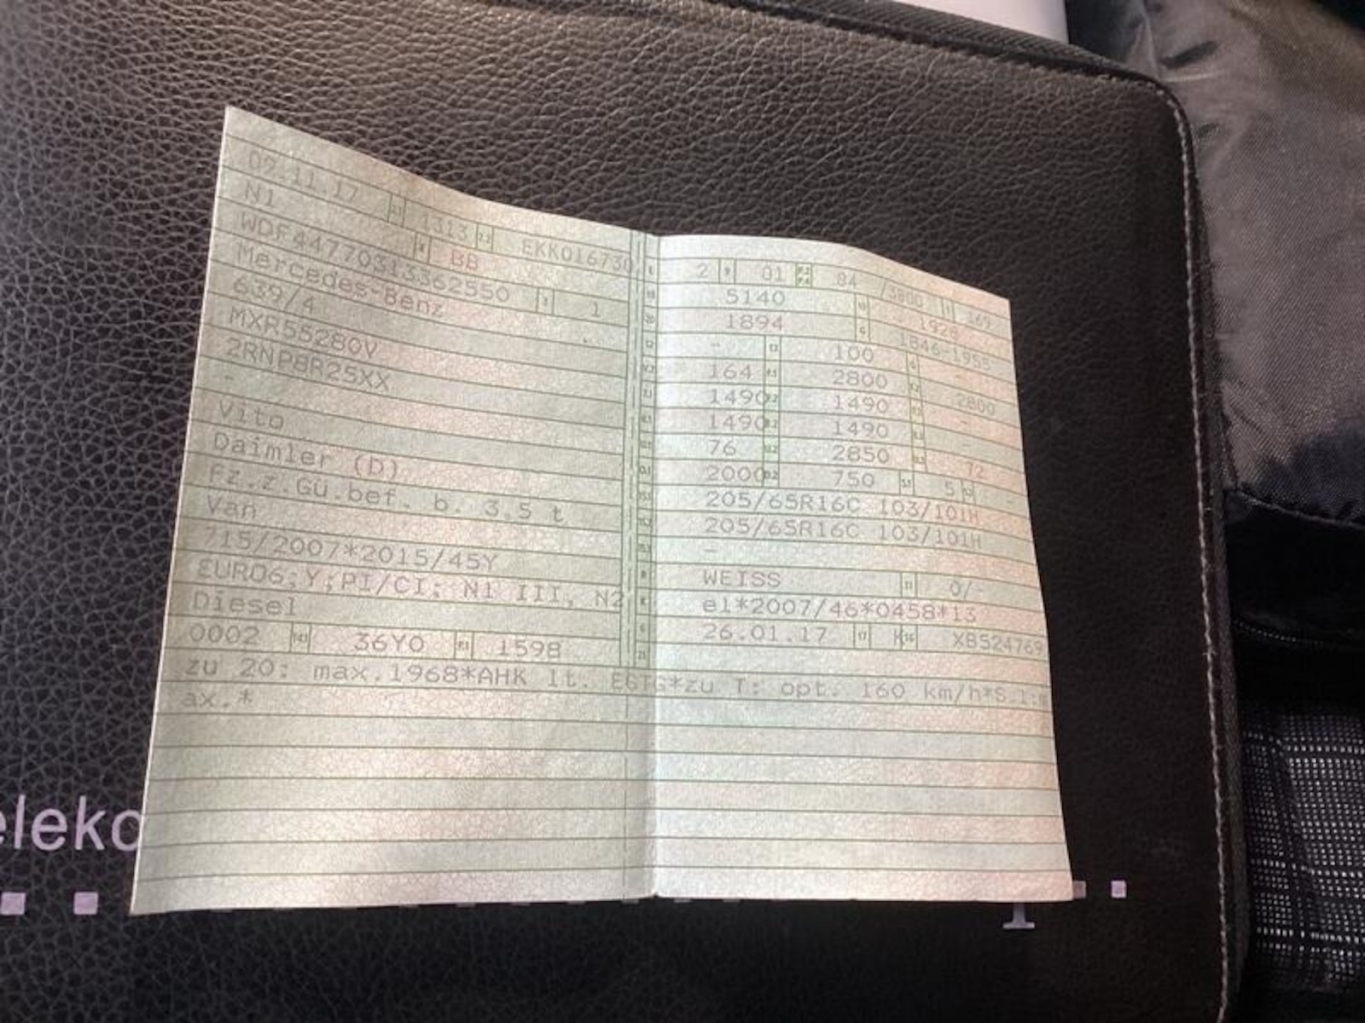 09.11.17 1313 EKK016730
N1 BB
WDF44770313362550 1
Mercedes-Benz
639/4
MXR55280V
2RNP8R25XX
-
Vito
Daimler (D)
Fz.z.Gü.bef. b. 3,5 t
Van
715/2007*2015/45Y
EURO6;Y;PI/CI; N1 III, N2
Diesel
0002 36Y0 1598
2 01 84 /3800 169
5140 1928
1894 1846-1955
- 100 -
164 2800 2800
1490 1490 -
1490 1490
76 2850 72
2000 750 5
205/65R16C 103/101H
205/65R16C 103/101H
-
WEISS 0/-
e1*2007/46*0458*13
26.01.17 K XB524769
zu 20: max.1968*AHK lt. EGTG*zu T: opt. 160 km/h*S.1:m
ax.*
eleko